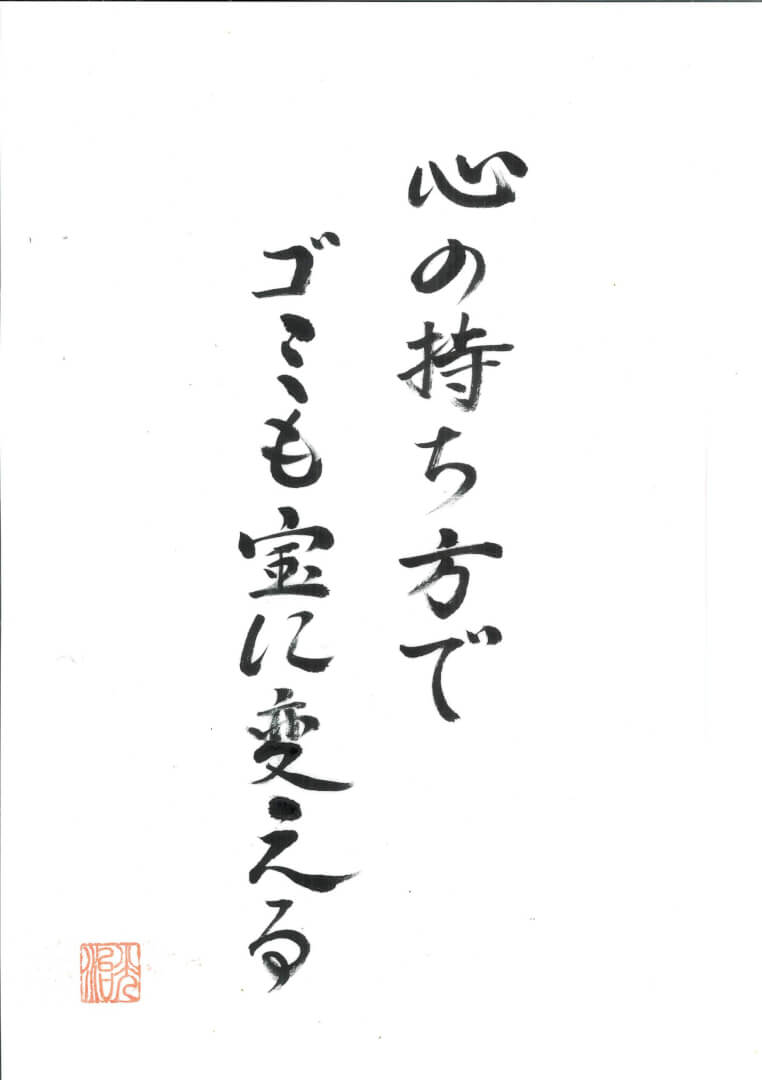 心の持ち方で
ゴミも宝に変える